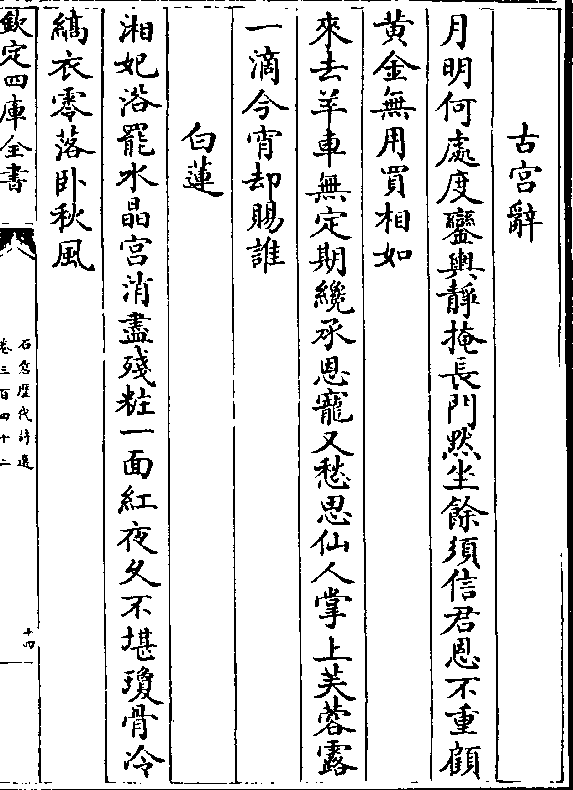 古宫辭
月明何處度鑾輿靜掩長門黙坐餘須信君恩不重顧
黄金無用買相如
來去羊車無定期纔承恩寵又愁思仙人掌上芙蓉露
一滴今宵却賜誰
白蓮
湘妃浴罷水晶宫消盡殘粧一面紅夜久不堪瓊骨冷
縞衣零落卧秋風
欽定四庫全書
石倉歷代詩選
卷三百四十二
十四